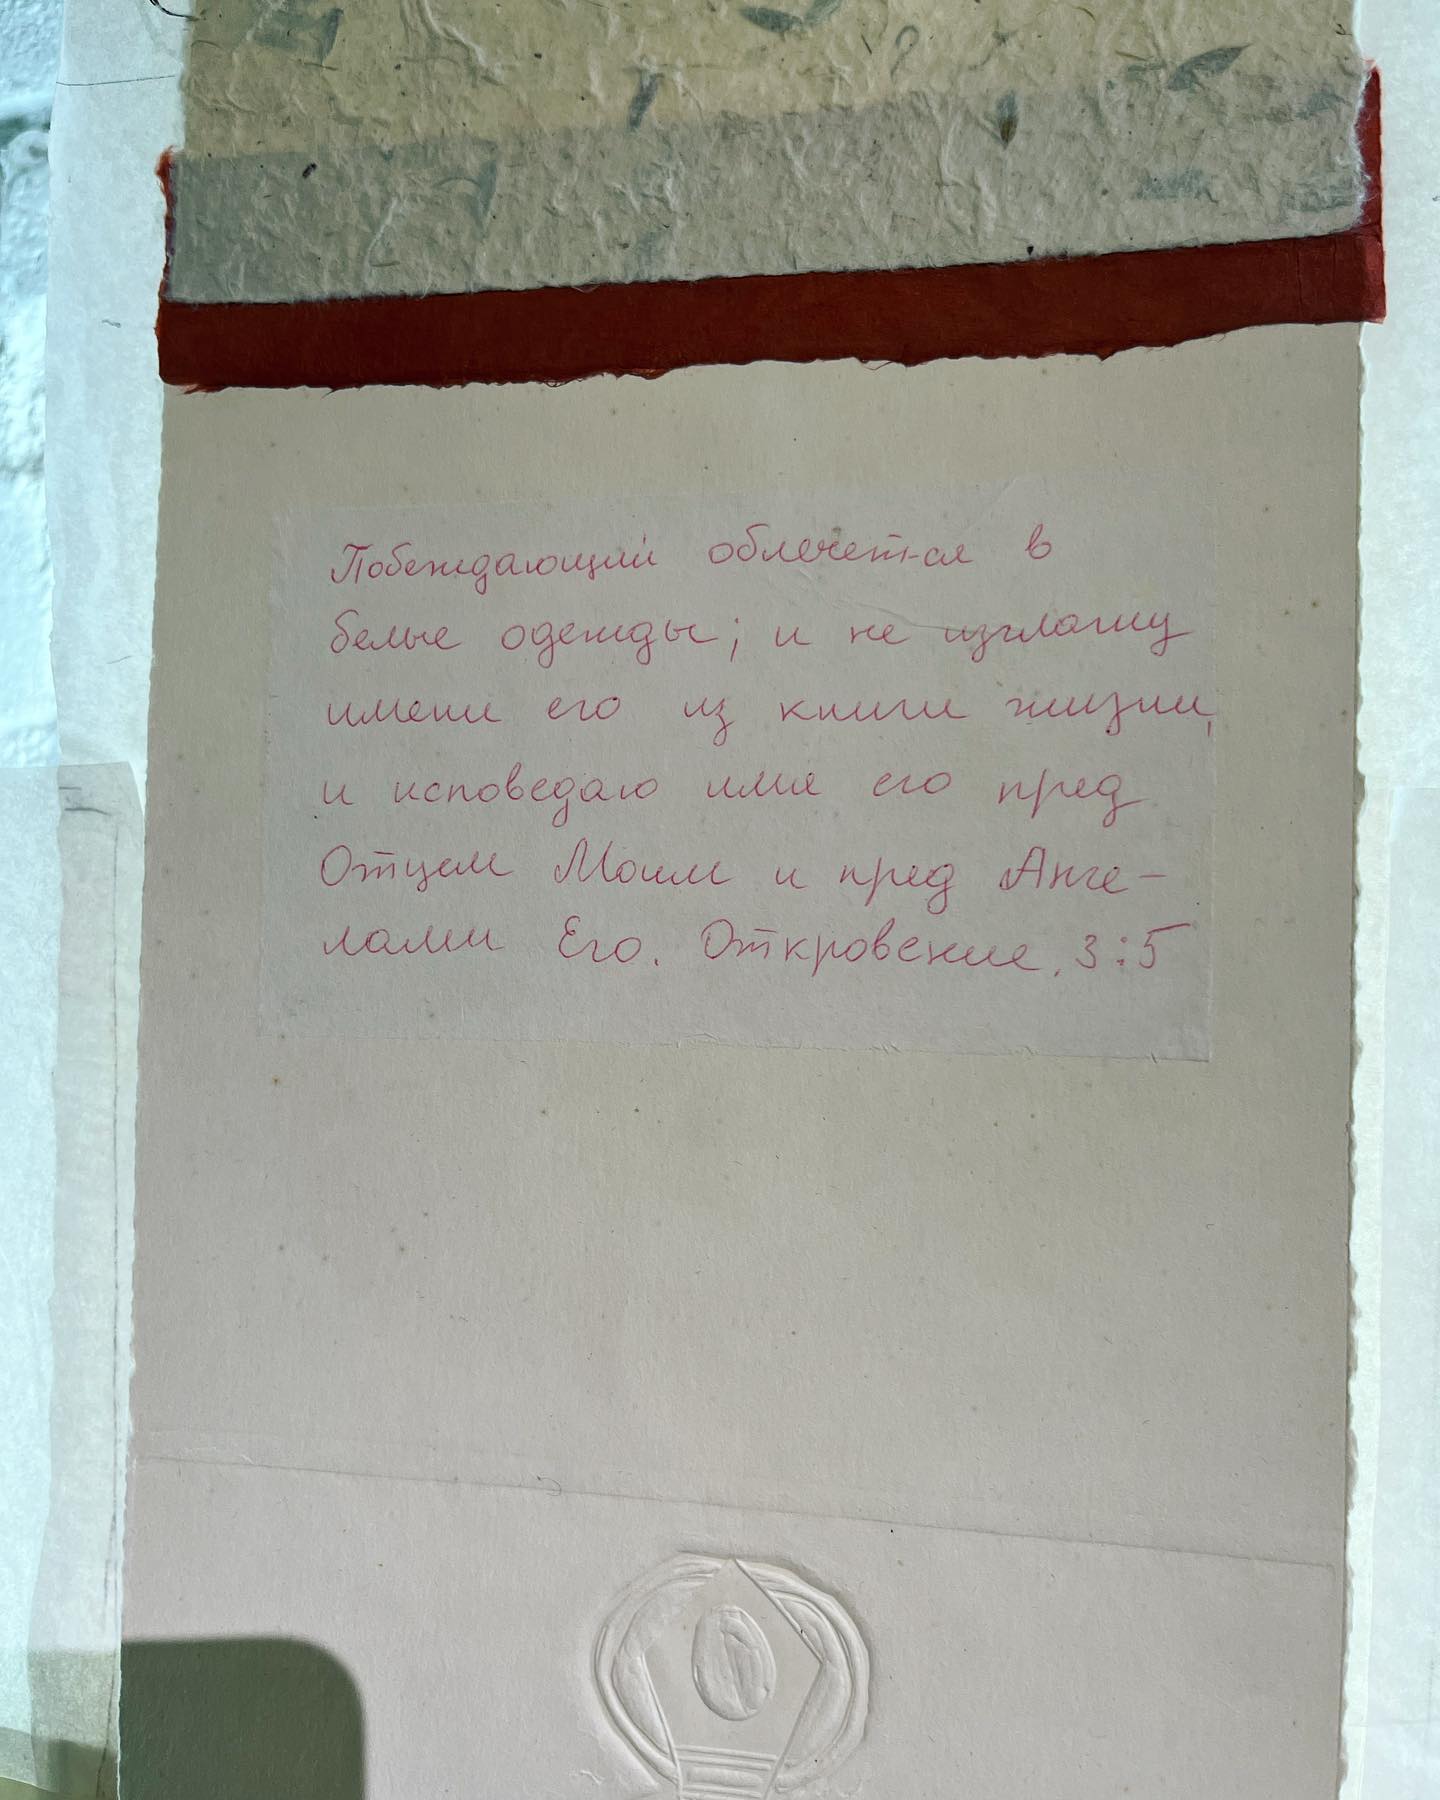 Побеждающий облечется в
белые одежды; и не изглажу
имени его из книги жизни,
и исповедаю имя его пред
Отцем Моим и пред Анге-
лами Его. Откровение. 3:5